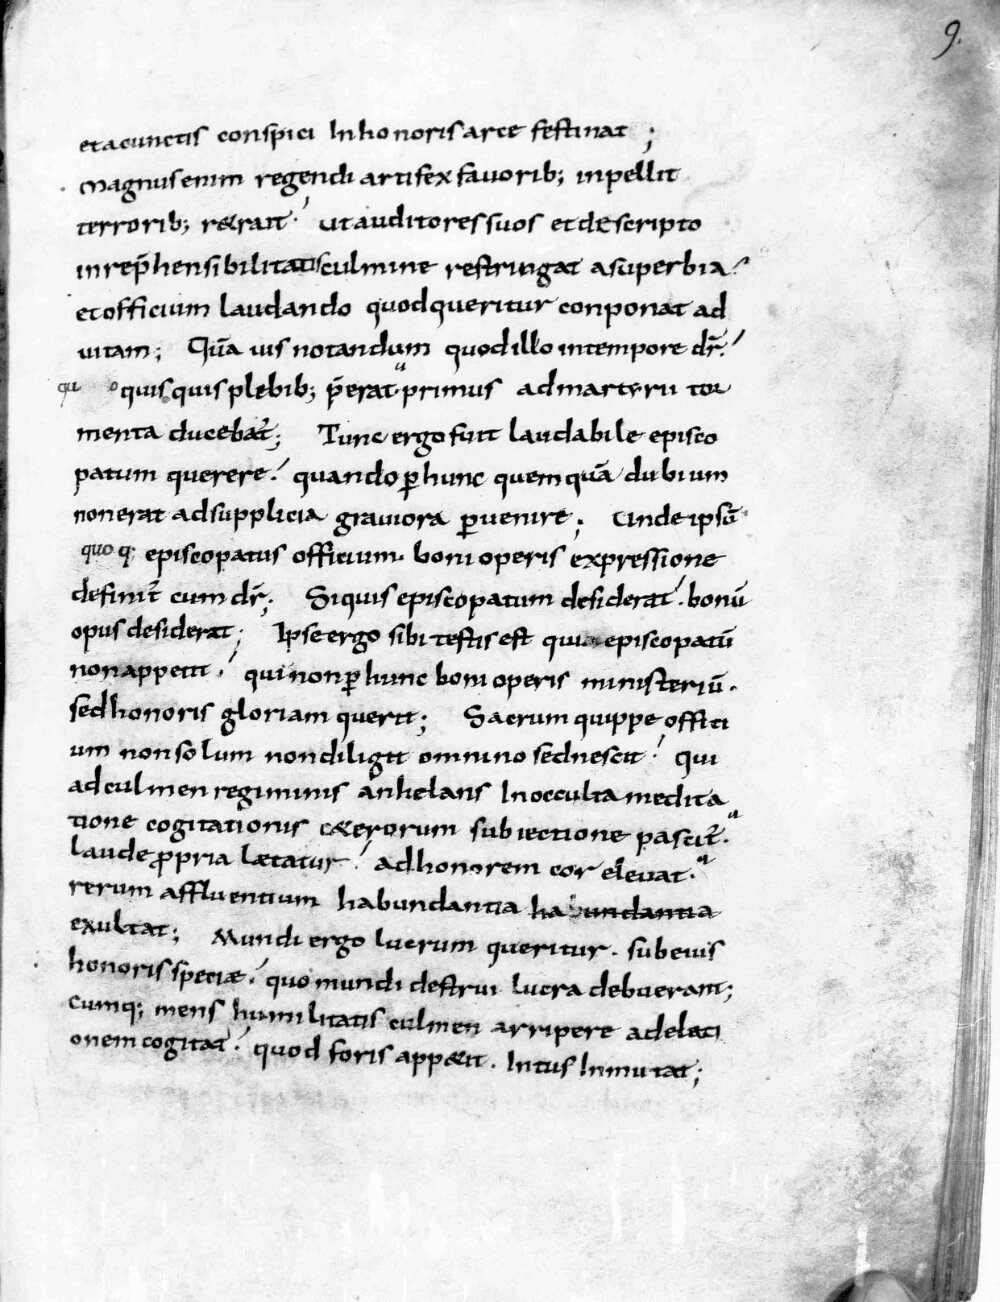 9.
etacunctis conspici Inhonoris arce festinat ;
Magnus enim regendi artifex favorib; inpellit
terrorib; r&rait· ut auditores suos et descripto
inrep̄hensibilitatis culmine restringat a superbia·
et officium laudando quod queritur conponat ad
vitam; Quā vis notandum quod illo in tempore dr̄·
quisquis plebib; p̄erat· primus ad martyrii tor
menta ducebat̄; Tunc ergo fuit laudabile episco
patum querere· quando ꝑ hunc quemquā dubium
non erat ad supplicia graviora ꝑvenire; Unde ipsū
quoq; episcopatus officium· boni operis expressione
definit̄ cum dr̄· Siquis episcopatum desiderat· bonū
opus desiderat; Ipse ergo sibi testis est quia episcopatū
non appetit· qui non ꝑ hunc boni operis ministeriū·
sed honoris gloriam querit; Sacrum quippe offiti
um non solum non diligit omnino sed nescit· qui
ad culmen regiminis anhelans In occulta medita
tione cogitationis c&erorum subiectione pascit̄·
laude propria lætatur· ad honorem cor elevat·
rerum affluentium habundantia habundantia
exultat; Mundi ergo lucrum queritur· sub eius
honoris speciæ· quo mundi destrui lucra debuerant;
Cumq; mens humilitatis culmen arripere ad elati
onem cogitat· quod foris app&it· Intus Inmutat;